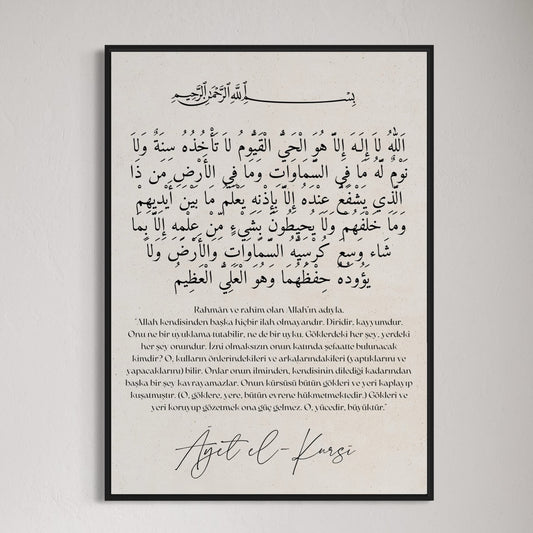 بِسْمِ اللَّهِ الرَّحْمَٰنِ الرَّحِيمِ
اَللّٰهُ لاَ إِلَـهَ إِلاَّ هُوَ الْحَيُّ الْقَيُّومُ لاَ تَأْخُذُهُ سِنَةٌ وَلاَ
نَوْمٌ لَّهُ مَا فِي السَّمَاوَاتِ وَمَا فِي الأَرْضِ مَن ذَا
الَّذِي يَشْفَعُ عِنْدَهُ إِلاَّ بِإِذْنِهِ يَعْلَمُ مَا بَيْنَ أَيْدِيهِمْ
وَمَا خَلْفَهُمْ وَلاَ يُحِيطُونَ بِشَيْءٍ مِّنْ عِلْمِهِ إِلاَّ بِمَا
شَاء وَسِعَ كُرْسِيُّهُ السَّمَاوَاتِ وَالأَرْضَ وَلاَ
يَؤُودُهُ حِفْظُهُمَا وَهُوَ الْعَلِيُّ الْعَظِيمُ
Rahmân ve rahîm olan Allah'ın adıyla.
"Allah kendisinden başka hiçbir ilah olmayandır. Diridir, kayyumdur.
Onu ne bir uyuklama tutabilir, ne de bir uyku. Göklerdeki her şey, yerdeki
her şey onundur. İzni olmaksızın onun katında şefaatte bulunacak
kimdir? O, kulların önlerindekileri ve arkalarındakileri (yaptıklarını ve
yapacaklarını) bilir. Onlar onun ilminden, kendisinin dilediği kadarından
başka bir şey kavrayamazlar. Onun kürsüsü bütün gökleri ve yeri kaplayıp
kuşatmıştır. (O, göklere, yere, bütün evrene hükmetmektedir.) Gökleri ve
yeri koruyup gözetmek ona güç gelmez. O, yücedir, büyüktür."
Âyet el-Kursî